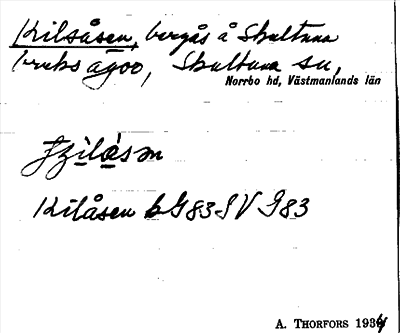 Kilsåsen, bergås å Skultuna
bruks ägoo, Skultuna sn,
Norrbo hd, Västmanlands län
Kilåsen bG83SV I83
A. THORFORS 1934